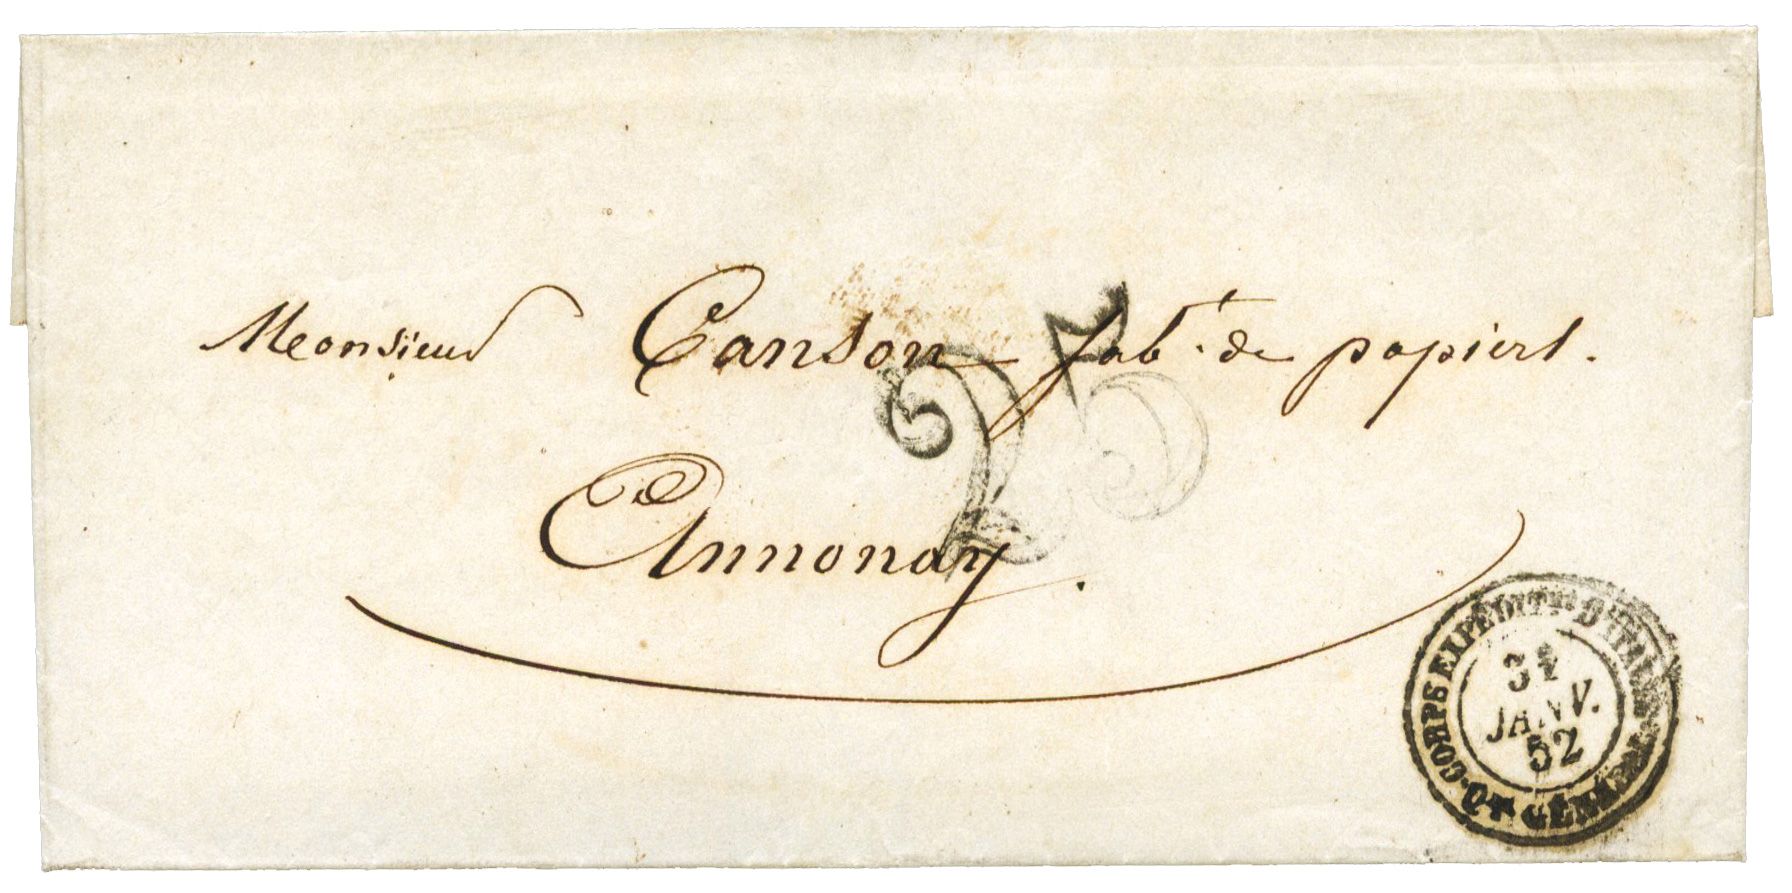 Monsieur Canson fabt. de papiers.
25
Annonay.
CORPS EXPÉDITre. D'ITALIE
31
JANV.
52
Qer. GÉNÉRAL